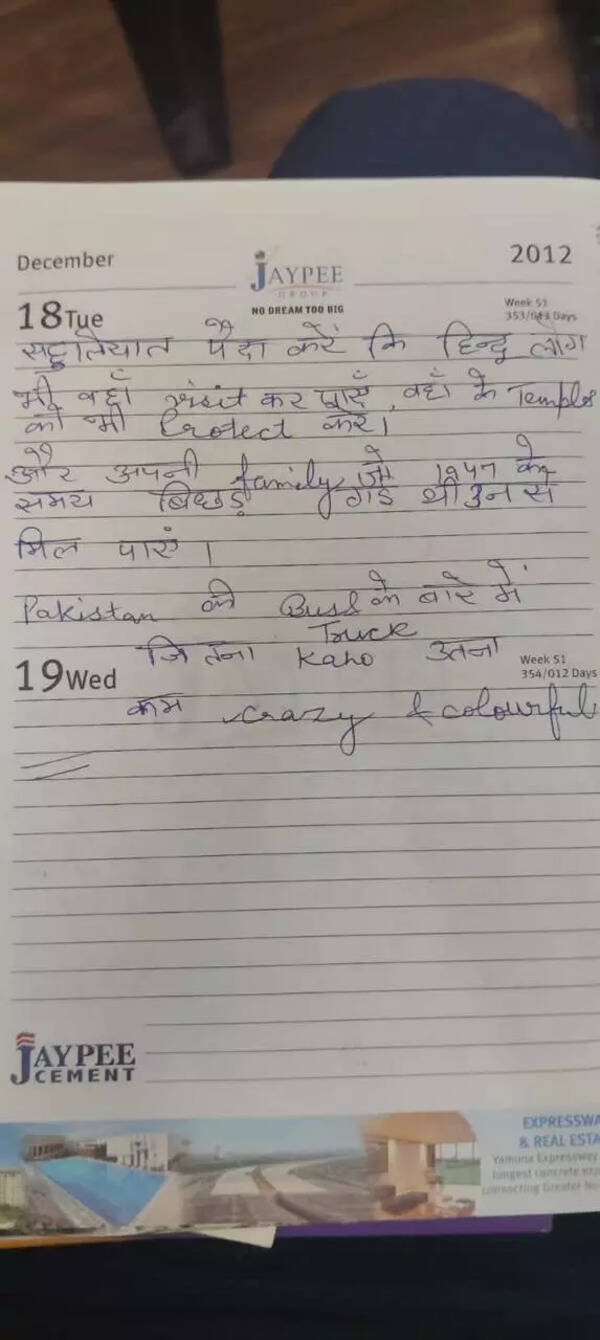 December
2012
JAYPEE
GROUP
NO DREAM TOO BIG
18 Tue
Week 51
353/013 Days
सहुलियात पैदा करें कि हिन्दू लोग
भी वहाँ visit कर पाएँ, वहाँ के Temples
को भी Protect करे।
और अपनी family जो 1947 के
समय बिछड़ गई थी उनसे
मिल पाएं।
Pakistan की Bus के बारे में
Truck
जितना kaho उतना
19 Wed
Week 51
354/012 Days
कम crazy & colourful
JAYPEE
CEMENT
EXPRESSWA
& REAL ESTA
Yamuna Expressway
longest concrete exp
connecting Greater No